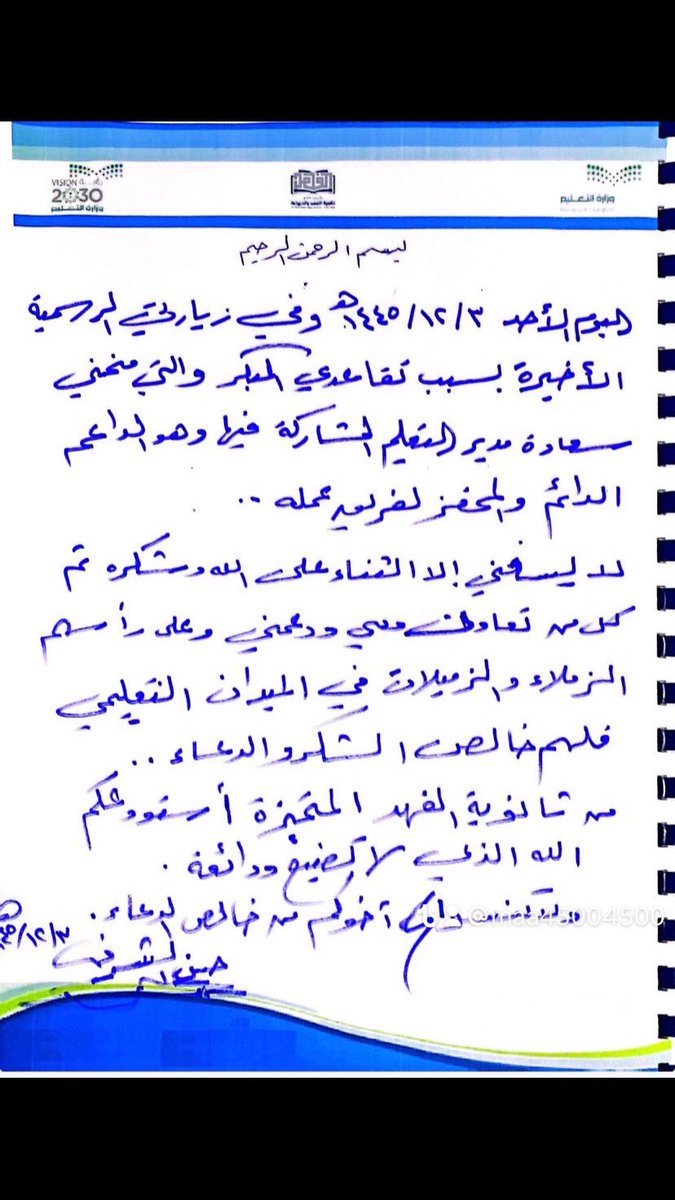 VISION رؤية
2030
وزارة التعليم
الفهد
وزارة التعليم
بسم الرحمن الرحيم
اليوم الأحد ١٤٤٥/١٢/٣هـ وفي زيارتي الرسمية
الأخيرة بسبب تقاعدي المبكر والتي منحني
سعادة مدير التعليم المشاركة فيها وهو الداعم
الدائم والمحفز لفريق عمله ..
لا يسعني إلا الثناء على الله وشكره ثم
كل من تعاون معي ودعمني وعلى رأسهم
الزملاء والزميلات في الميدان التعليمي
فلهم خالص الشكر والدعاء ..
من ثانوية الفهد المتميزة أستودعكم
الله الذي لا تضيع ودائعه .
أخوكم من خالص الدعاء .
@maa45004500
١٤٤٥/١٢/٣هـ